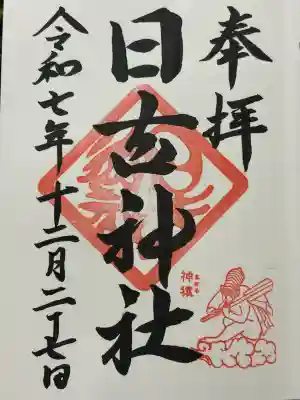 奉拝
日吉神社
令和七年十二月二十七日
神猿